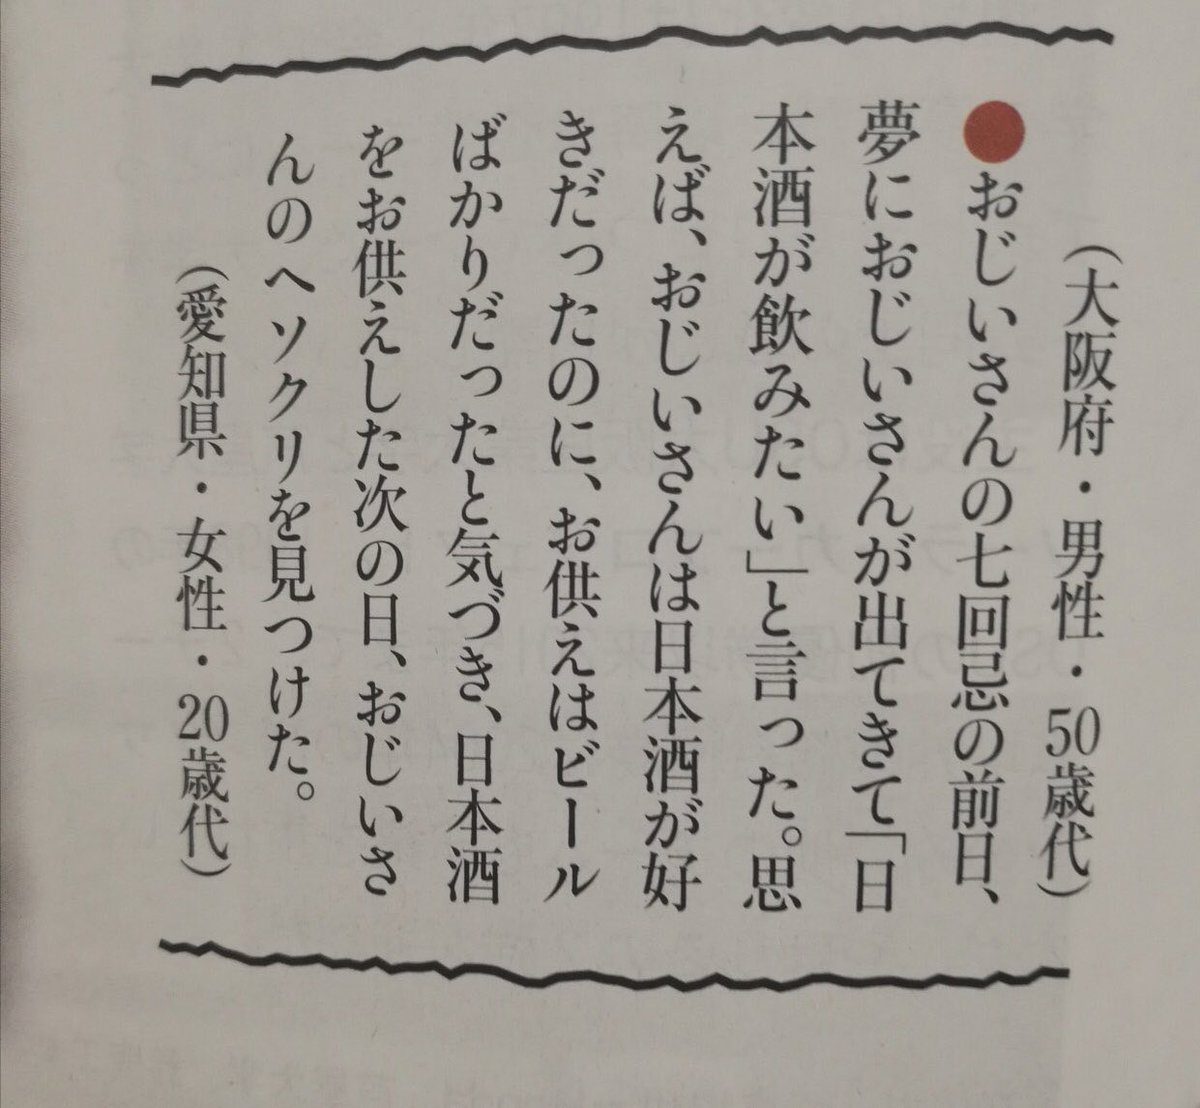 （大阪府・男性・50歳代）
●おじいさんの七回忌の前日、
夢におじいさんが出てきて「日
本酒が飲みたい」と言った。思
えば、おじいさんは日本酒が好
きだったのに、お供えはビール
ばかりだったと気づき、日本酒
をお供えした次の日、おじいさ
んのヘソクリを見つけた。
（愛知県・女性・20歳代）